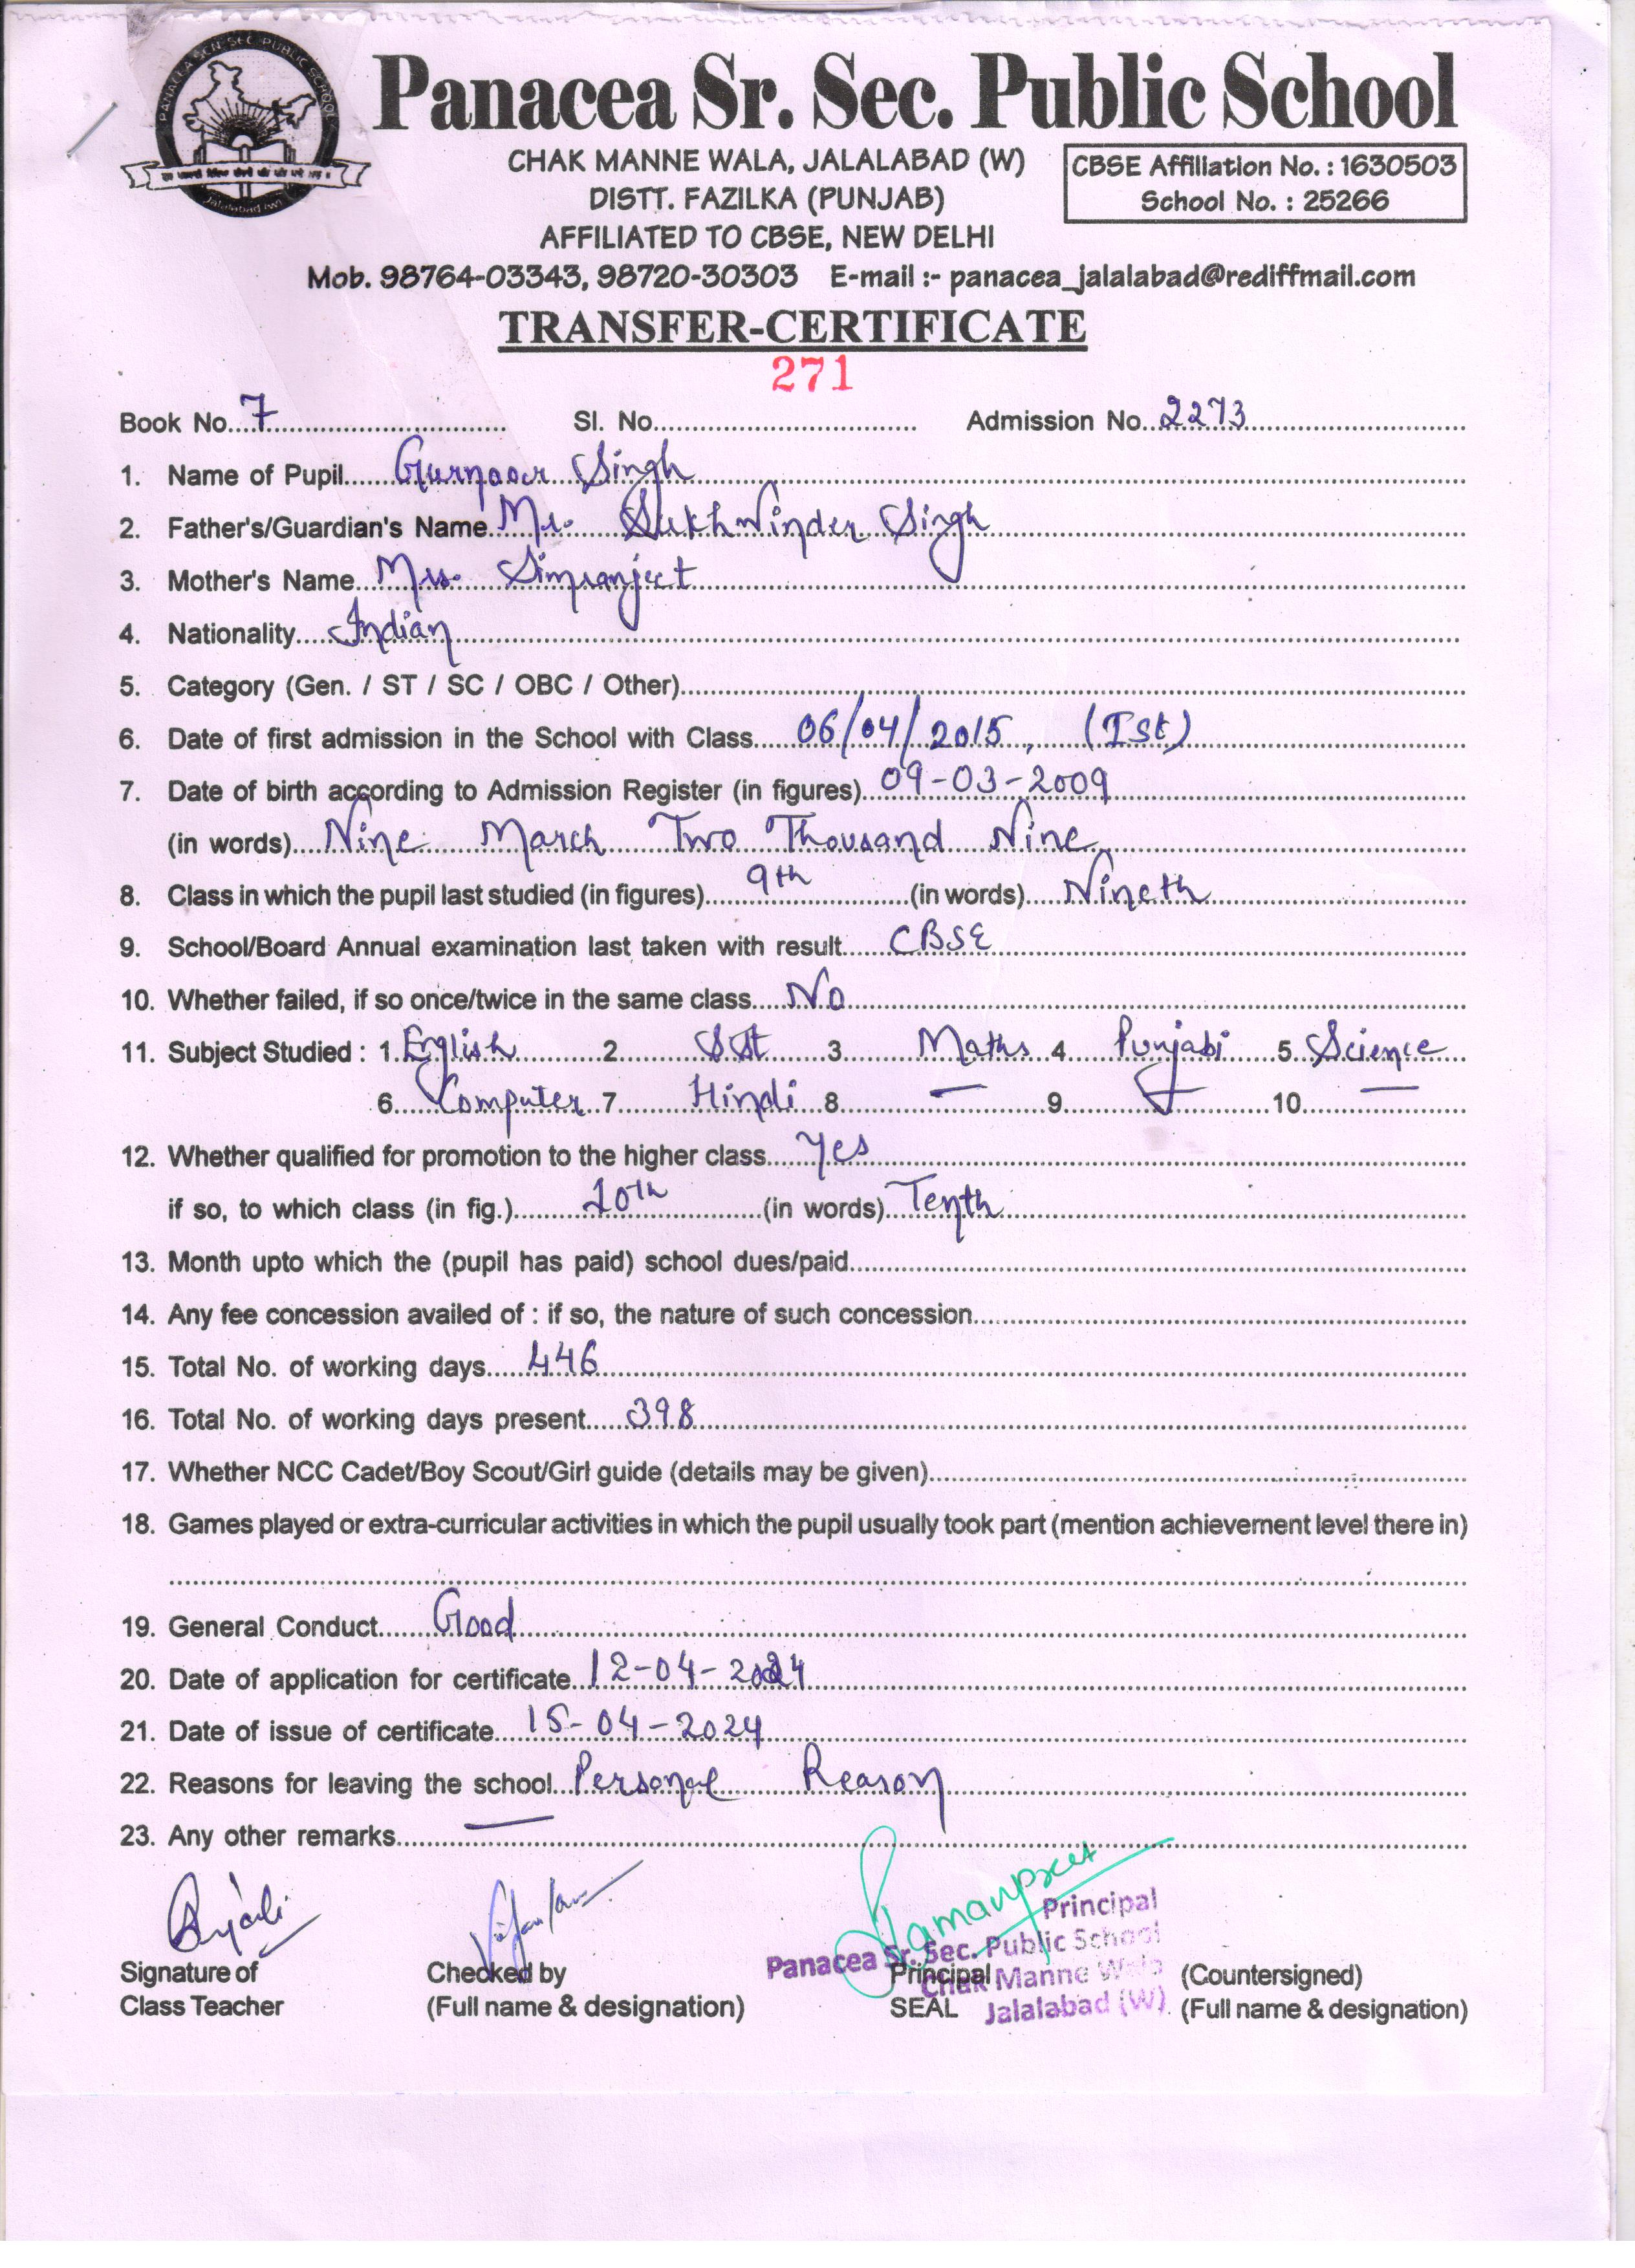 PANACEA SCN. SEC. PUBLIC SCHOOL
Jalalabad (W)
Panacea Sr. Sec. Public School
CHAK MANNE WALA, JALALABAD (W)
DISTT. FAZILKA (PUNJAB)
AFFILIATED TO CBSE, NEW DELHI
CBSE Affiliation No. : 1630503
School No. : 25266
Mob. 98764-03343, 98720-30303 E-mail :- panacea_jalalabad@rediffmail.com
TRANSFER-CERTIFICATE
271
Book No. 7 Sl. No. Admission No. 2273
1. Name of Pupil Gurnoor Singh
2. Father's/Guardian's Name Mr. Sukhwinder Singh
3. Mother's Name Mrs. Simranjeet
4. Nationality Indian
5. Category (Gen. / ST / SC / OBC / Other)
6. Date of first admission in the School with Class 06/04/2015, (Ist)
7. Date of birth according to Admission Register (in figures) 09-03-2009
(in words) Nine March Two Thousand Nine
8. Class in which the pupil last studied (in figures) 9th (in words) Nineth
9. School/Board Annual examination last taken with result CBSE
10. Whether failed, if so once/twice in the same class No
11. Subject Studied : 1. English 2 SSt 3 Maths 4 Punjabi 5 Science
6. Computer 7 Hindi 8 — 9 — 10 —
12. Whether qualified for promotion to the higher class Yes
if so, to which class (in fig.) 10th (in words) Tenth
13. Month upto which the (pupil has paid) school dues/paid
14. Any fee concession availed of : if so, the nature of such concession
15. Total No. of working days 446
16. Total No. of working days present 398
17. Whether NCC Cadet/Boy Scout/Girl guide (details may be given)
18. Games played or extra-curricular activities in which the pupil usually took part (mention achievement level there in)
19. General Conduct Good
20. Date of application for certificate 12-04-2024
21. Date of issue of certificate 15-04-2024
22. Reasons for leaving the school Personal Reason
23. Any other remarks —
Ramanpreet
Principal
Panacea Sr. Sec. Public School
Chak Manne Wala
Jalalabad (W)
Signature of Checked by Principal (Countersigned)
Class Teacher (Full name & designation) SEAL (Full name & designation)